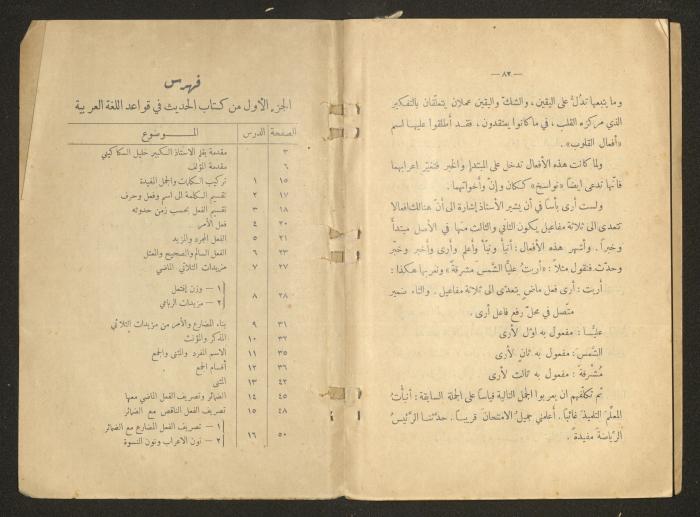 — ٨٢ —
وما يتبعها تدُلُّ على اليقين، والشكّ واليقين عملان يتعلّقان بالتفكير
الذي مركزه القلب، في ما كانوا يعتقدون، فقد أطلقوا عليها اسم
«أفعال القلوب».
ولما كانت هذه الأفعال تدخل على المبتدإ والخبر فتغيّر اعرابهما
فانّها تدعى ايضًا «نواسخ» ككان وإنّ وأخواتهما.
ولست أرى بأسًا في أن يشير الأستاذ إشارة الى أنّ هنالك افعالا
تتعدى الى ثلاثة مفاعيل يكون الثاني والثالث منها في الأصل مبتدأ
وخبراً. وأشهر هذه الأفعال: أنبأ ونبّأ وأعلم وأرى وأخبر وخبّر
وحدّث. فنقول مثلاً: «أريتُ عليًّا الشمسَ مشرقةً» ونعربها هكذا:
أريت: أرى فعل ماضٍ يتعدّى الى ثلاثة مفاعيل. والتاء ضمير
متّصل في محلّ رفع فاعل أرى.
عليًّا: مفعول به اوّل لأرى
الشمسَ: مفعول به ثانٍ لأرى
مُشرقةً: مفعول به ثالث لأرى
ثم تكلّفهم ان يعربوا الجمل التالية قياسًا على الجملة السابقة: أنبأتُ
المعلّمَ التلميذَ غائبًا. أعلمني جميلٌ الامتحانَ قريبًا. حدّثنا الرئيسُ
الرياضةَ مفيدةً.
فهرس
الجزء الأول من كتاب الحديث في قواعد اللغة العربية
الصفحة الدرس الموضوع
٣ مقدمة بقلم الاستاذ الكبير خليل السكاكيني
٦ مقدمة المؤلف
١٥ ١ تركيب الكلمات والجمل المفيدة
١٧ ٢ تقسيم الكلمة الى اسم وفعل وحرف
١٨ ٣ تقسيم الفعل بحسب زمن حدوثه
٢٠ ٤ فعل الأمر
٢١ ٥ الفعل المجرد والمزيد
٢٣ ٦ الفعل السالم والصحيح والمعتل
٢٧ ٧ مزيدات الثلاثي الماضي
٢٨ ٨ ١ — وزن إفتعل
٢ — مزيدات الرباعي
٣١ ٩ بناء المضارع والأمر من مزيدات الثلاثي
٣٢ ١٠ المذكر والمؤنث
٣٥ ١١ الاسم المفرد والمثنى والجمع
٣٦ ١٢ أقسام الجمع
٤٢ ١٣ المثنى
٤٥ ١٤ الضمائر وتصريف الفعل الماضي معها
٤٨ ١٥ تصريف الفعل الناقص مع الضمائر
٥٠ ١٦ ١ — تصريف الفعل المضارع مع الضمائر
٢ — نون الاعراب ونون النسوة